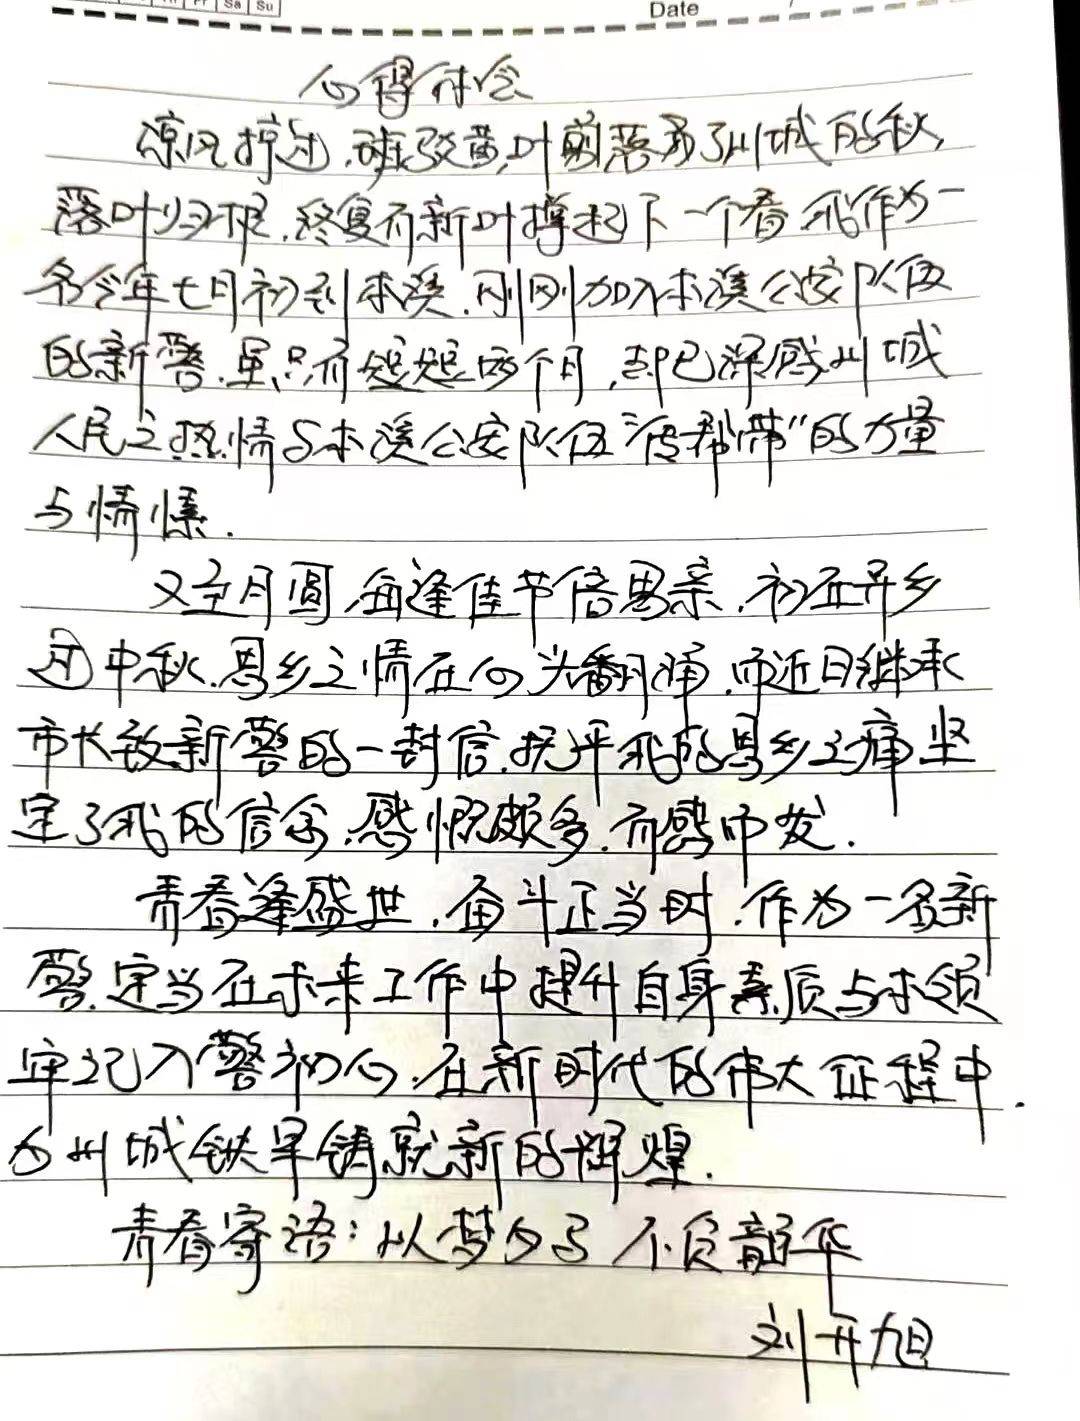 Sa Su
Date
心得体会
凉风掠过,斑驳黄叶剪落了山城的秋,
落叶归根,终复有新叶撑起下一个春,我作为一
名今年七月初到本溪,刚刚加入本溪公安队伍
的新警,虽只有短短两个月,却已深感山城
人民之热情与本溪公安队伍“传帮带”的力量
与情愫.
又至月圆,每逢佳节倍思亲,初在异乡
过中秋,思乡之情在心头翻涌,而近日继承
市长致新警的一封信,抚平我的思乡之痛坚
定了我的信念,感慨颇多,有感而发.
青春逢盛世,奋斗正当时,作为一名新
警,定当在未来工作中提升自身素质与本领
牢记入警初心,在新时代的伟大征程中,
为山城铁军铸就新的辉煌.
青春寄语:以梦为马 不负韶华
刘开旭